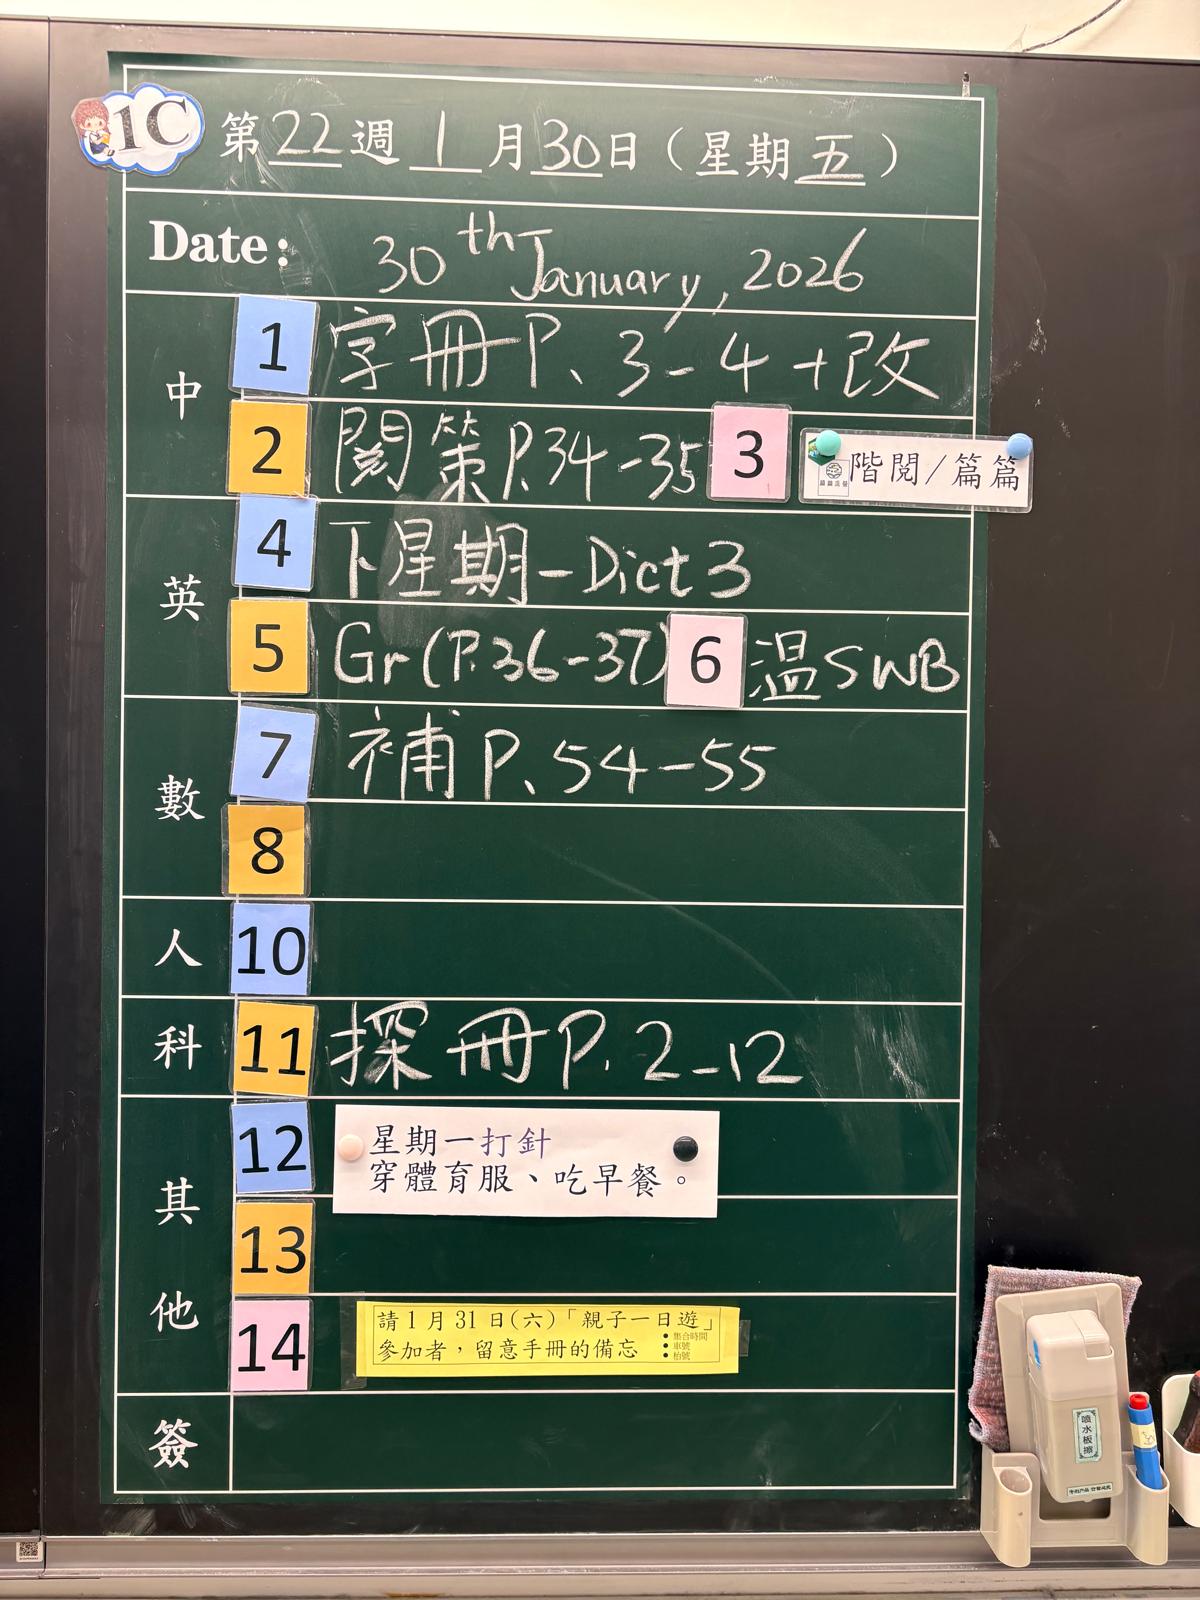 1C
第22週 1月30日（星期五）
Date: 30th January, 2026
中
1 字冊P. 3-4 +改
2 閱策P.34-35 3 階閱/篇篇
英
4 下星期-Dict 3
5 Gr(P.36-37) 6 溫SWB
數
7 補P. 54-55
8
人 10
科 11 探冊P. 2-12
其他
12 星期一打針
穿體育服、吃早餐。
13
14 請1月31日(六)「親子一日遊」
參加者，留意手冊的備忘
• 集合時間
• 車號
• 枱號
簽
噴水板擦